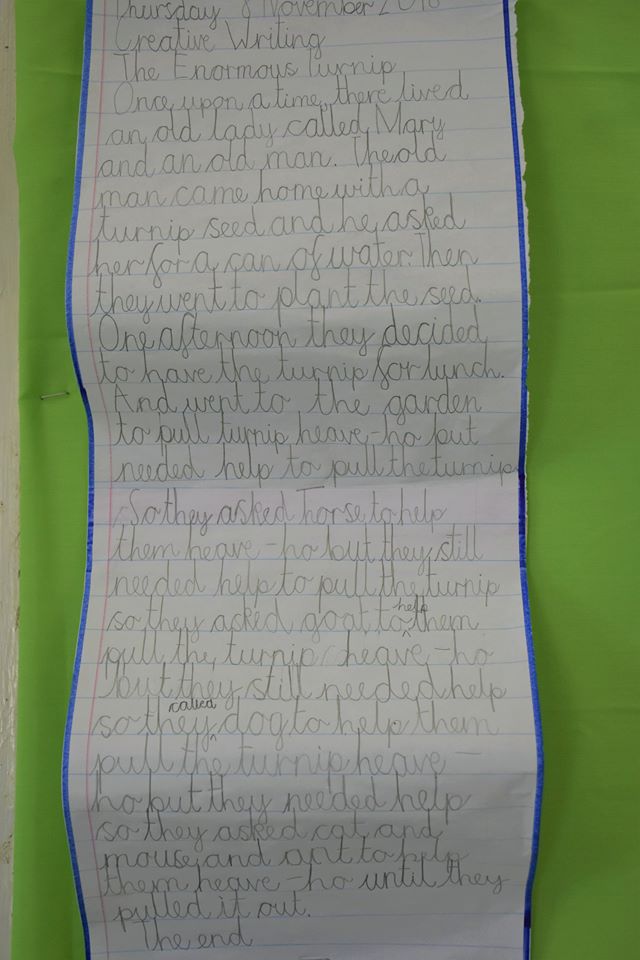 Thursday 8 November 2018
Creative Writing
The Enormous Turnip
Once upon a time, there lived
an old lady called Mary
and an old man. The old
man came home with a
turnip seed and he asked
her for a can of water. Then
they went to plant the seed.
One afternoon they decided
to have the turnip for lunch.
And went to the garden
to pull turnip heave-ho but
needed help to pull the turnip.
So they asked horse to help
them heave-ho but they still
needed help to pull the turnip
so they asked goat to help them
pull the turnip heave-ho
but they still needed help
so they called dog to help them
pull the turnip heave-
ho but they needed help
so they asked cat and
mouse and ant to help
them heave-ho until they
pulled it out.
The end